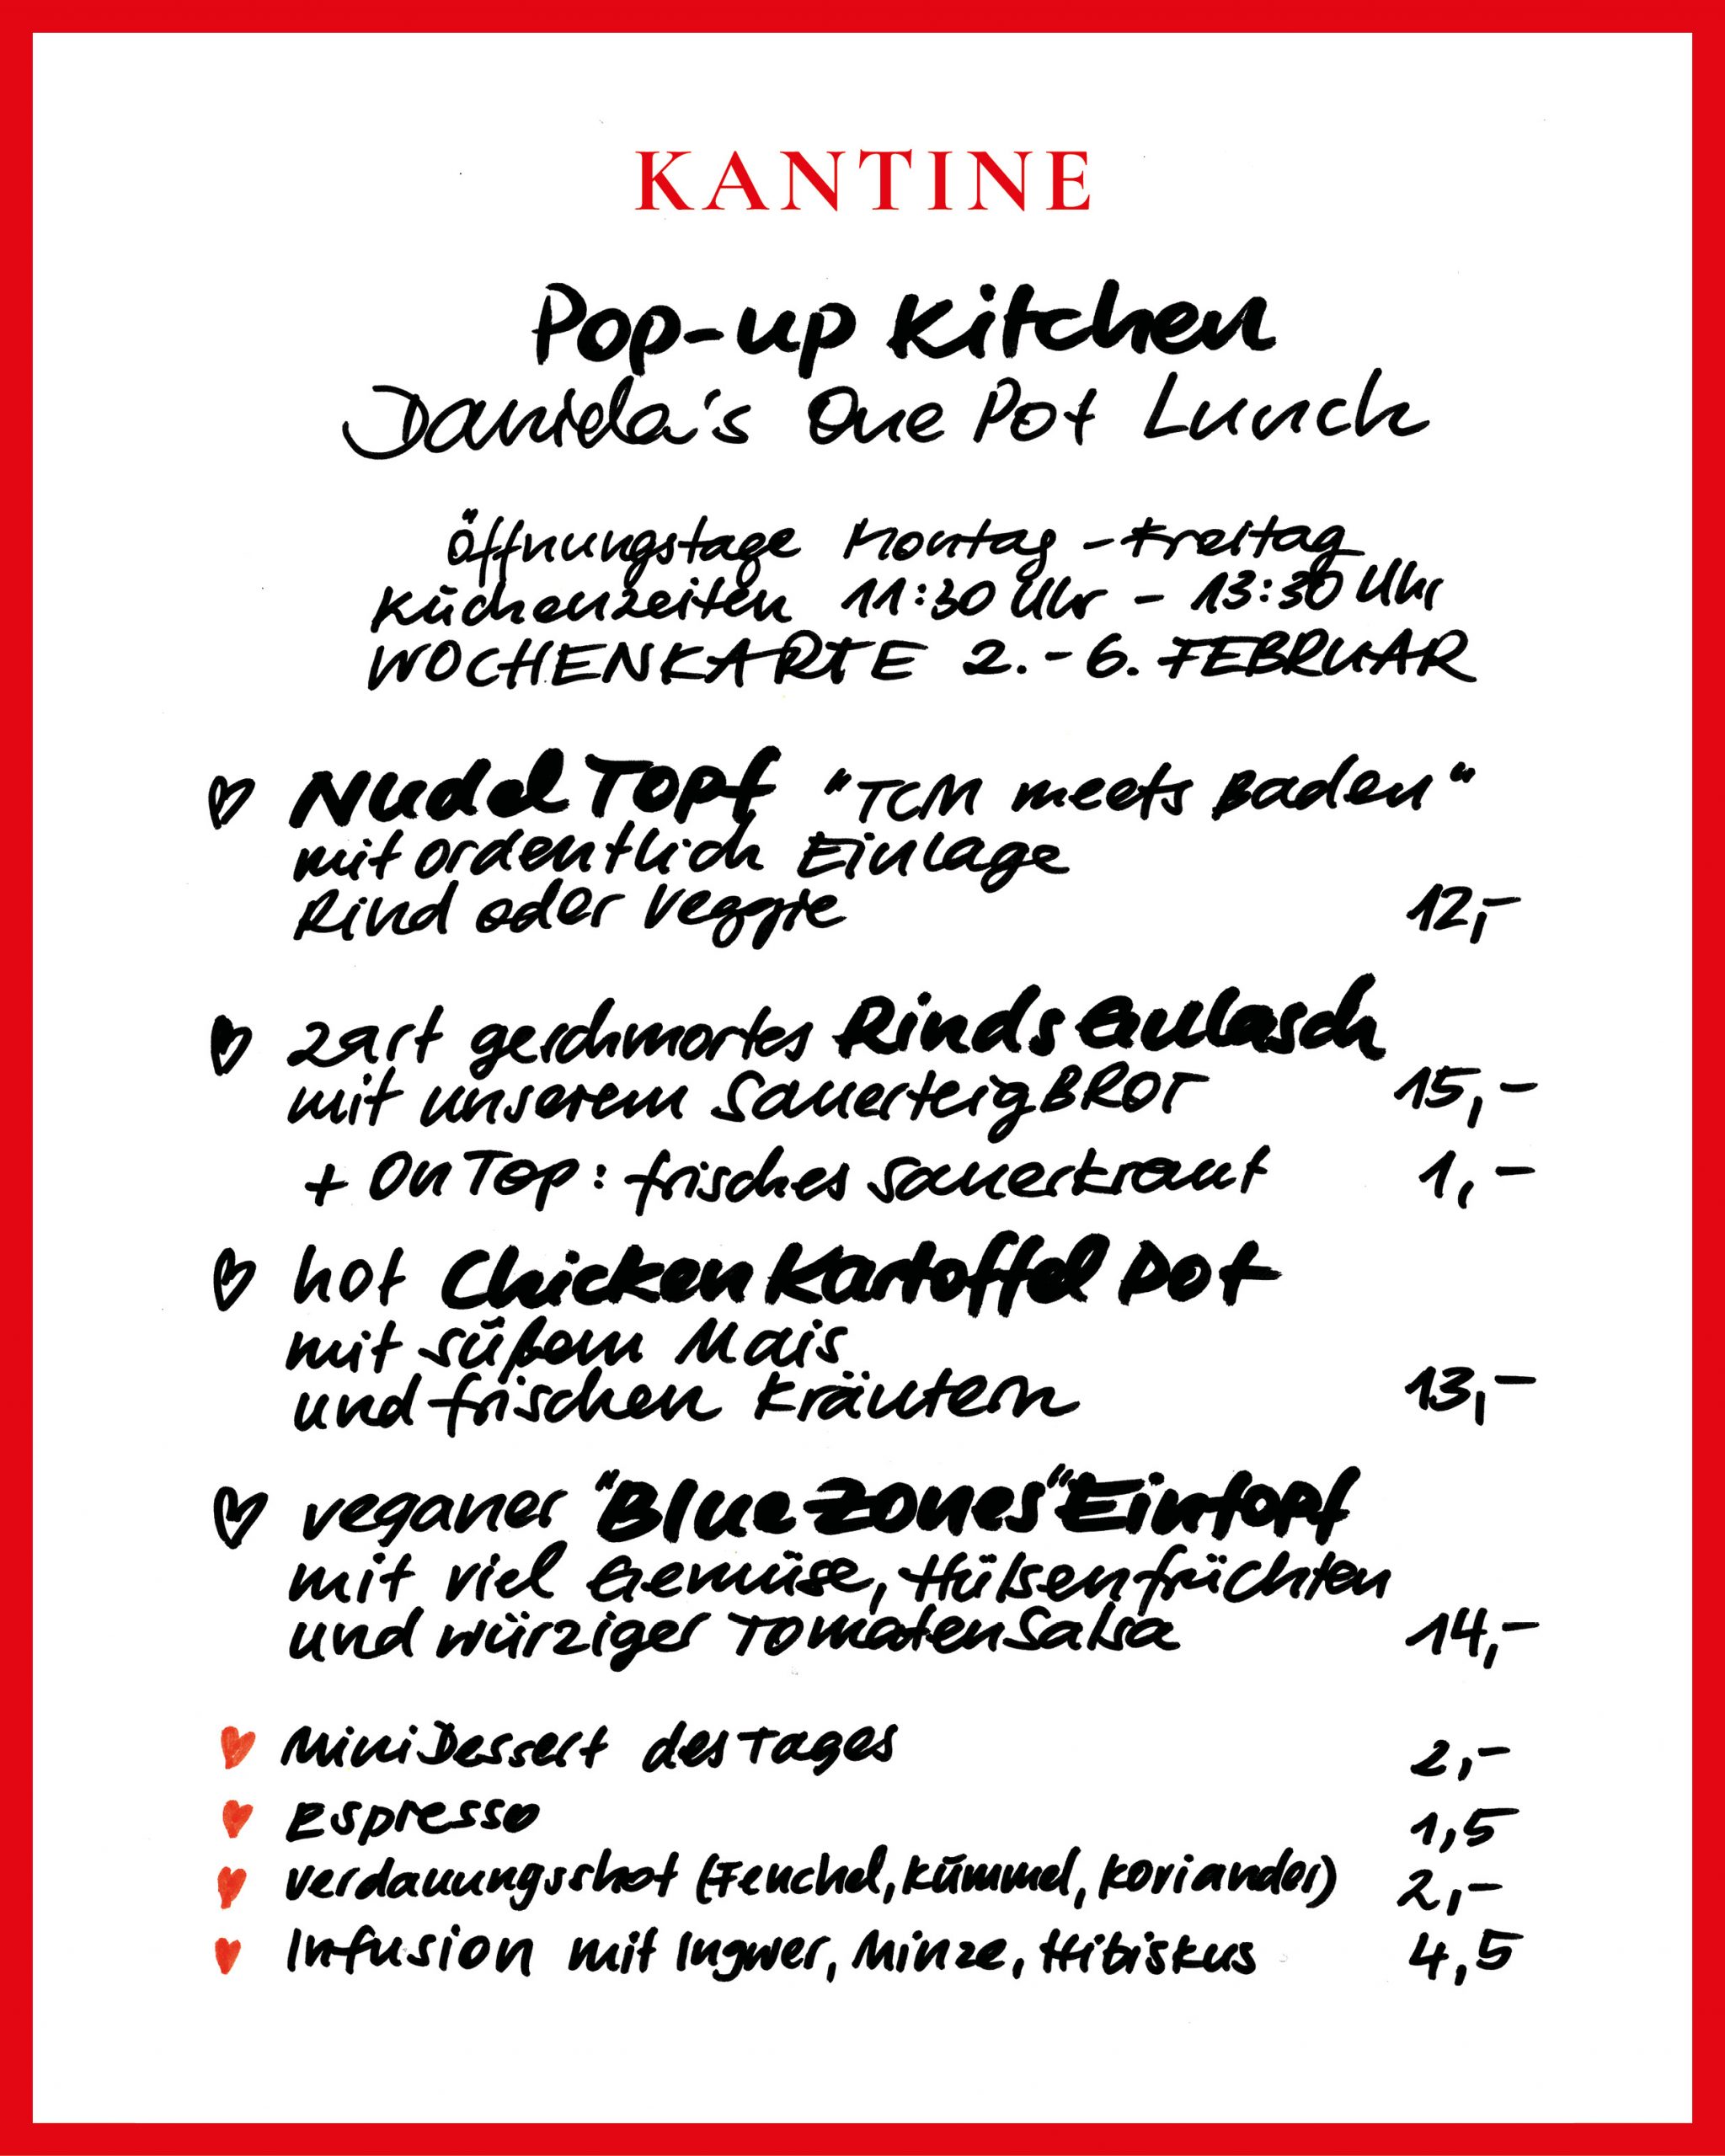 KANTINE
Pop-up Kitchen
Daniela's One Pot Lunch
Öffnungstage Montag - Freitag
Küchenzeiten 11:30 Uhr - 13:30 Uhr
WOCHENKARTE 2.-6. FEBRUAR
♡ Nudel Topf "TCM meets Baden"
mit ordentlich Einlage
Rind oder Veggie 12,-
♡ zart geschmortes Rinds Gulasch
mit unserem SauerteigBROT 15,-
+ On Top: frisches Sauerkraut 1,-
♡ hot Chicken Kartoffel Pot
mit süßem Mais
und frischen Kräutern 13,-
♡ veganer "Blue Zones" Eintopf
mit viel Gemüse, Hülsenfrüchten
und würziger TomatenSalsa 14,-
♥ MiniDessert des Tages 2,-
♥ Espresso 1,5
♥ Verdauungsshot (Fenchel, Kümmel, Koriander) 2,-
♥ Infusion mit Ingwer, Minze, Hibiskus 4,5